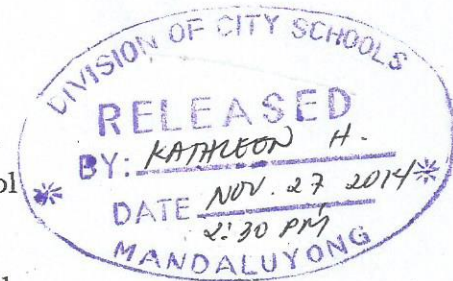 DIVISION OF CITY SCHOOLS
RELEASED
BY: KATHLEEN H.
DATE NOV. 27 2014
2:30 PM
MANDALUYONG
ol